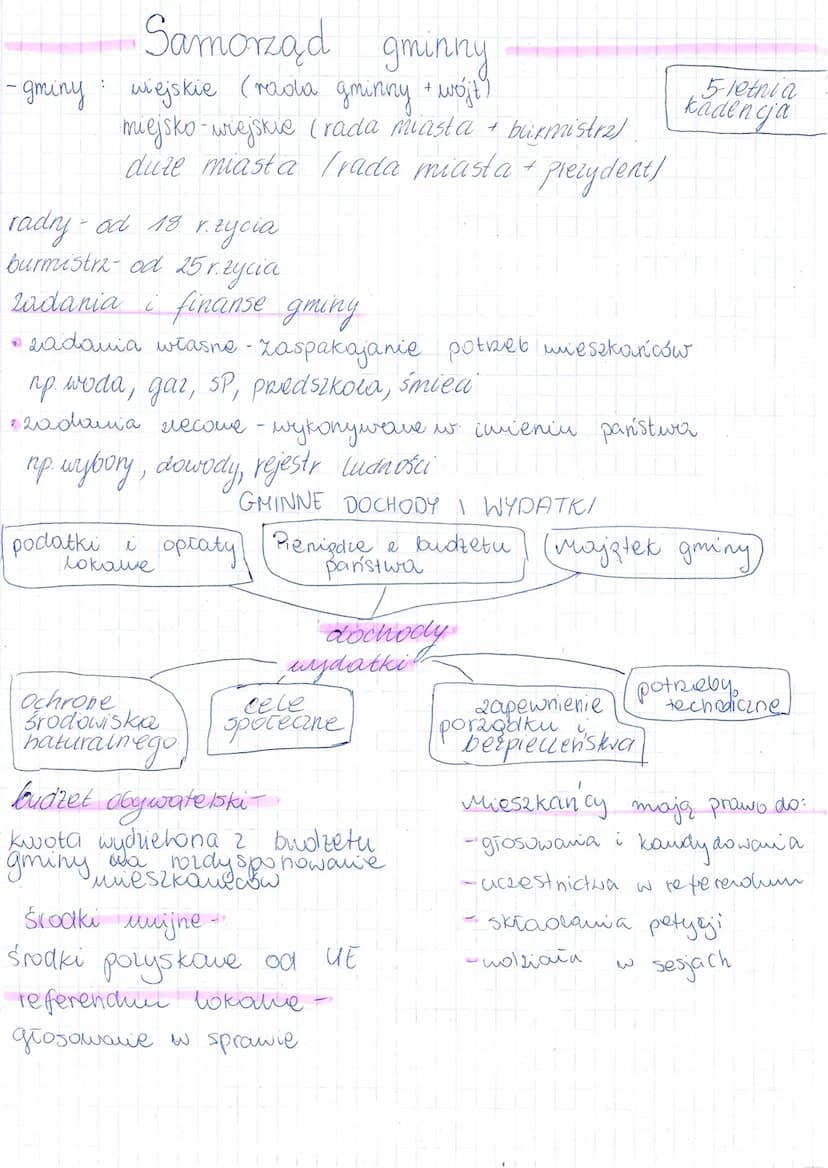 Samorząd gminny
- gminy: wiejskie (rada gminny + wójt)
5-letnia
kadencja
miejsko-wiejskie (rada miasta + burmistrz)
duże miasta (rada miasta + prezydent)
radny - od 18 r. życia
burmistrz - od 25 r. życia
zadania i finanse gminy
• zadania własne - zaspakajanie potrzeb mieszkańców
np. woda, gaz, SP, przedszkola, śmieci
• zadania zlecone - wykonywane w imieniu państwa
np. wybory, dowody, rejestr ludności
GMINNE DOCHODY I WYDATKI
podatki i opłaty
lokalne
Pieniądze z budżetu
państwa
Majątek gminy
dochody
wydatki
ochrone
środowiska
naturalnego
cele
społeczne
zapewnienie
porządku i
bezpieczeństwa
potrzeby
techniczne
budżet obywatelski -
kwota wydzielona z budżetu
gminy dla rozdysponowanie
mieszkańców
Środki unijne -
środki pozyskane od UE
referendum lokalne -
głosowanie w sprawie
Mieszkańcy mają prawo do:
- głosowania i kandydowania
- uczestnictwa w referendum
- składania petycji
- udziału w sesjach